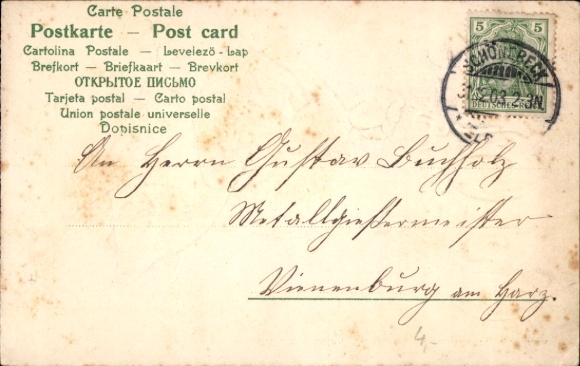 Carte Postale
Postkarte — Post card
Cartolina Postale — Levelező-Lap
Brefkort — Briefkaart — Brevkort
ОТКРЫТОЕ ПИСЬМО
Tarjeta postal — Carto postal
Union postale universelle
Dopisnice
5 5
SCHÖNEBECK
DEUTSCHES REICH
An Herrn Gustav Buchholz
Metallgießermeister
Vienenburg am Harz.
4,-